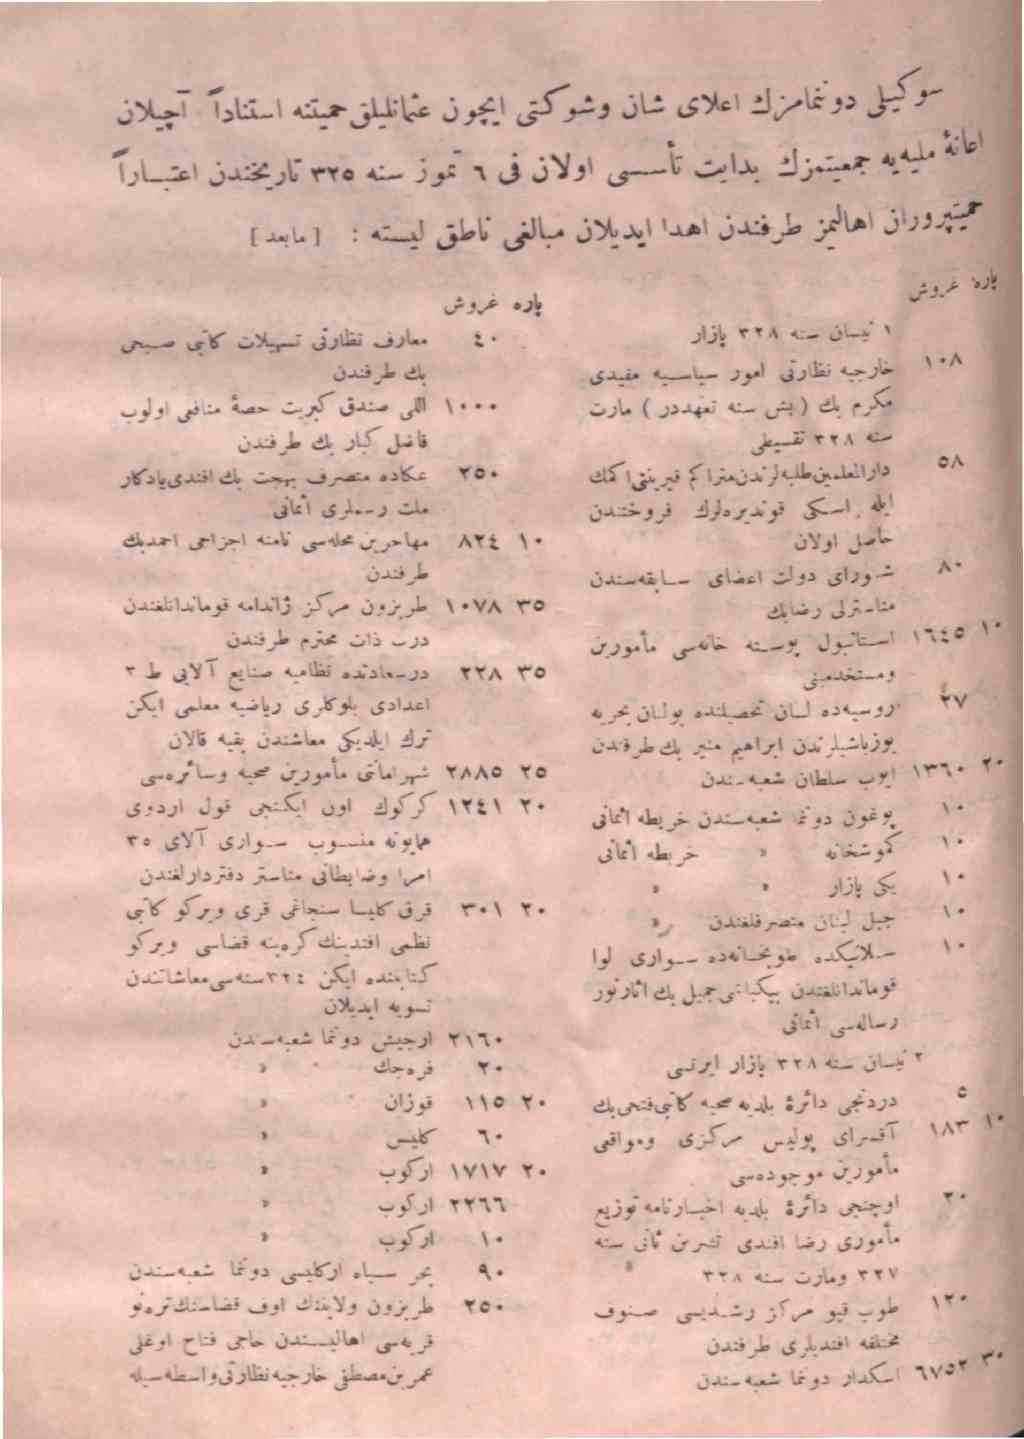 سوكيلى دوننمامزك اعلاى شان وشوكتى ايچون عثمانليلق حميتنه استناداً آچيلان
اعانۀ مليه‌يه جمعيتمزك بدايت تأسسى اولان فى ٦ تموز سنه ٣٢٥ تاريخندن اعتباراً
حميتپروران اهاليمز طرفندن اهدا ايديلان مبالغى ناطق ليسته : [ مابعد ]
پاره غروش
١ نيسان سنه ٣٢٨ پازار
١٠٨ خارجيه نظارتى امور سياسيه مقيدى
مكرم بك ( بش سنه تعهددر ) مارت
سنه ٣٢٨ تقسيطى
٥٨ دارالمعلمين طلبه‌لرندن متراكم قيرينتى اكمك
ايله اسكى قونديره‌لرك فروختندن
حاصل اولان
٨٠ شوراى دولت اعضاى سابقه‌سندن
مناسترلى رضابك
١٠ ١٦٤٥ استانبول پوسته خانه‌سى مأمورين
ومستخدمينى
٢٧ روسيه‌ده لسان تحصيلنده بولنان بحريه
يوزباشيلرندن ابراهيم منير بك طرفندن
٢٠ ١٣٦٠ ايوب سلطان شعبه‌سندن
١٠ پوغون دوننما شعبه‌سندن خريطه اثمانى
١٠ كموشخانه » خريطه اثمانى
١٠ يكى پازار » »
١٠ جبل لبنان متصرفلغندن »
١٠ سلانيكده طوپخانه‌ده سوارى لوا
قومانداننلغندن بيكباشى جميل بك اثارنور
رساله‌سى اثمانى
٢ نيسان سنه ٣٢٨ پازار ايرتسى
٥ دردنجى دائرۀ بلديه صحيه كاتبى فتحى بك
١٠ ١٨٣ آقسراى پوليس مركزى ومواقعى
مأمورين موجوده‌سى
٢٠ اوچنجى دائرۀ بلديه اخبارنامه توزيع
مأمورى رضا افندى تشرين ثانى سنه
٣٢٧ ومارت سنه ٣٢٨
١٢٠ طوپ قپو مركز رشديسى صنوف
مختلفه افنديلرى طرفندن
٣٠ ٦٧٥٢ اسكدار دوننما شعبه‌سندن
پاره غروش
٤٠ معارف نظارتى تسهيلات كاتبى صبحى
بك طرفندن
١٠٠٠ اللى صندق كبريت حصۀ منافعى اولوب
فاضل كبار بك طرفندن
٢٥٠ عكاده متصرف بهجت بك افندى يادكار
ملت رسملرى اثمانى
١٠ ٨٢٤ مهاجرين محله‌سى نامنه اجزاجى احمدبك
طرفندن
٣٥ ١٠٧٨ طربزون مركز ژاندامه قومانداننلغندن
درت ذات محترم طرفندن
٣٥ ٢٢٨ درسعادتده نظاميه صنايع آلايى ط ٣
اعدادى بلوكلرى رياضيه معلمى ايكن
ترك ايلديكى معاشندن بقيه قالان
٢٥ ٢٨٨٥ شهرامانتى مأمورين صحيه وسائره‌سى
٢٠ ١٢٤١ كركوك اون ايكنجى قول اردوى
همايونه منسوب سوارى آلاى ٣٥
امرا وضابطانى مناستر دفتردارلغندن
٢٠ ٣٠١ قرق كليسا سنجاغى قرى ويركو كاتبى
نظمى افندينك كره‌بنه قضاسى ويركو
كتابتنده ايكن ٣٢٤ سنه‌سى معاشاتندن
تسويه ايديلان
٢١٦٠ ارجيش دوننما شعبه‌سندن
٢٠ فره‌جك »
٢٠ ١١٥ قوزان »
٦٠ كليس »
٢٠ ١٧١٧ اركوب »
٢٢٦٦ اركوب »
١٠ اركوب »
٩٠ بحر سياه اركليسى دوننما شعبه‌سندن
٢٥٠ طربزون ولايتنك اوف قضاسنك تره‌نو
قريه‌سى اهاليسندن حاجى فتاح اوغلى
عمر بن مصطفى خارجيه نظارتى واسطه‌سيله